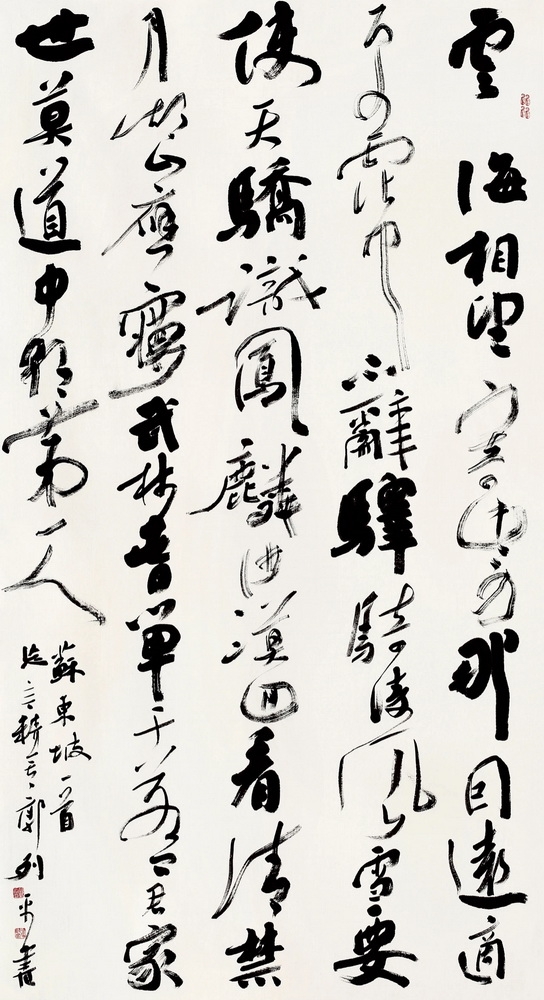 雲海相望寄此身那因遠適
更霑巾不辭驛騎凌風雪要
使天驕識鳳麟沙漠回看清禁
月湖山應夢武林春單于若問君家
世莫道中朝第一人
蘇東坡一首
郭列平書